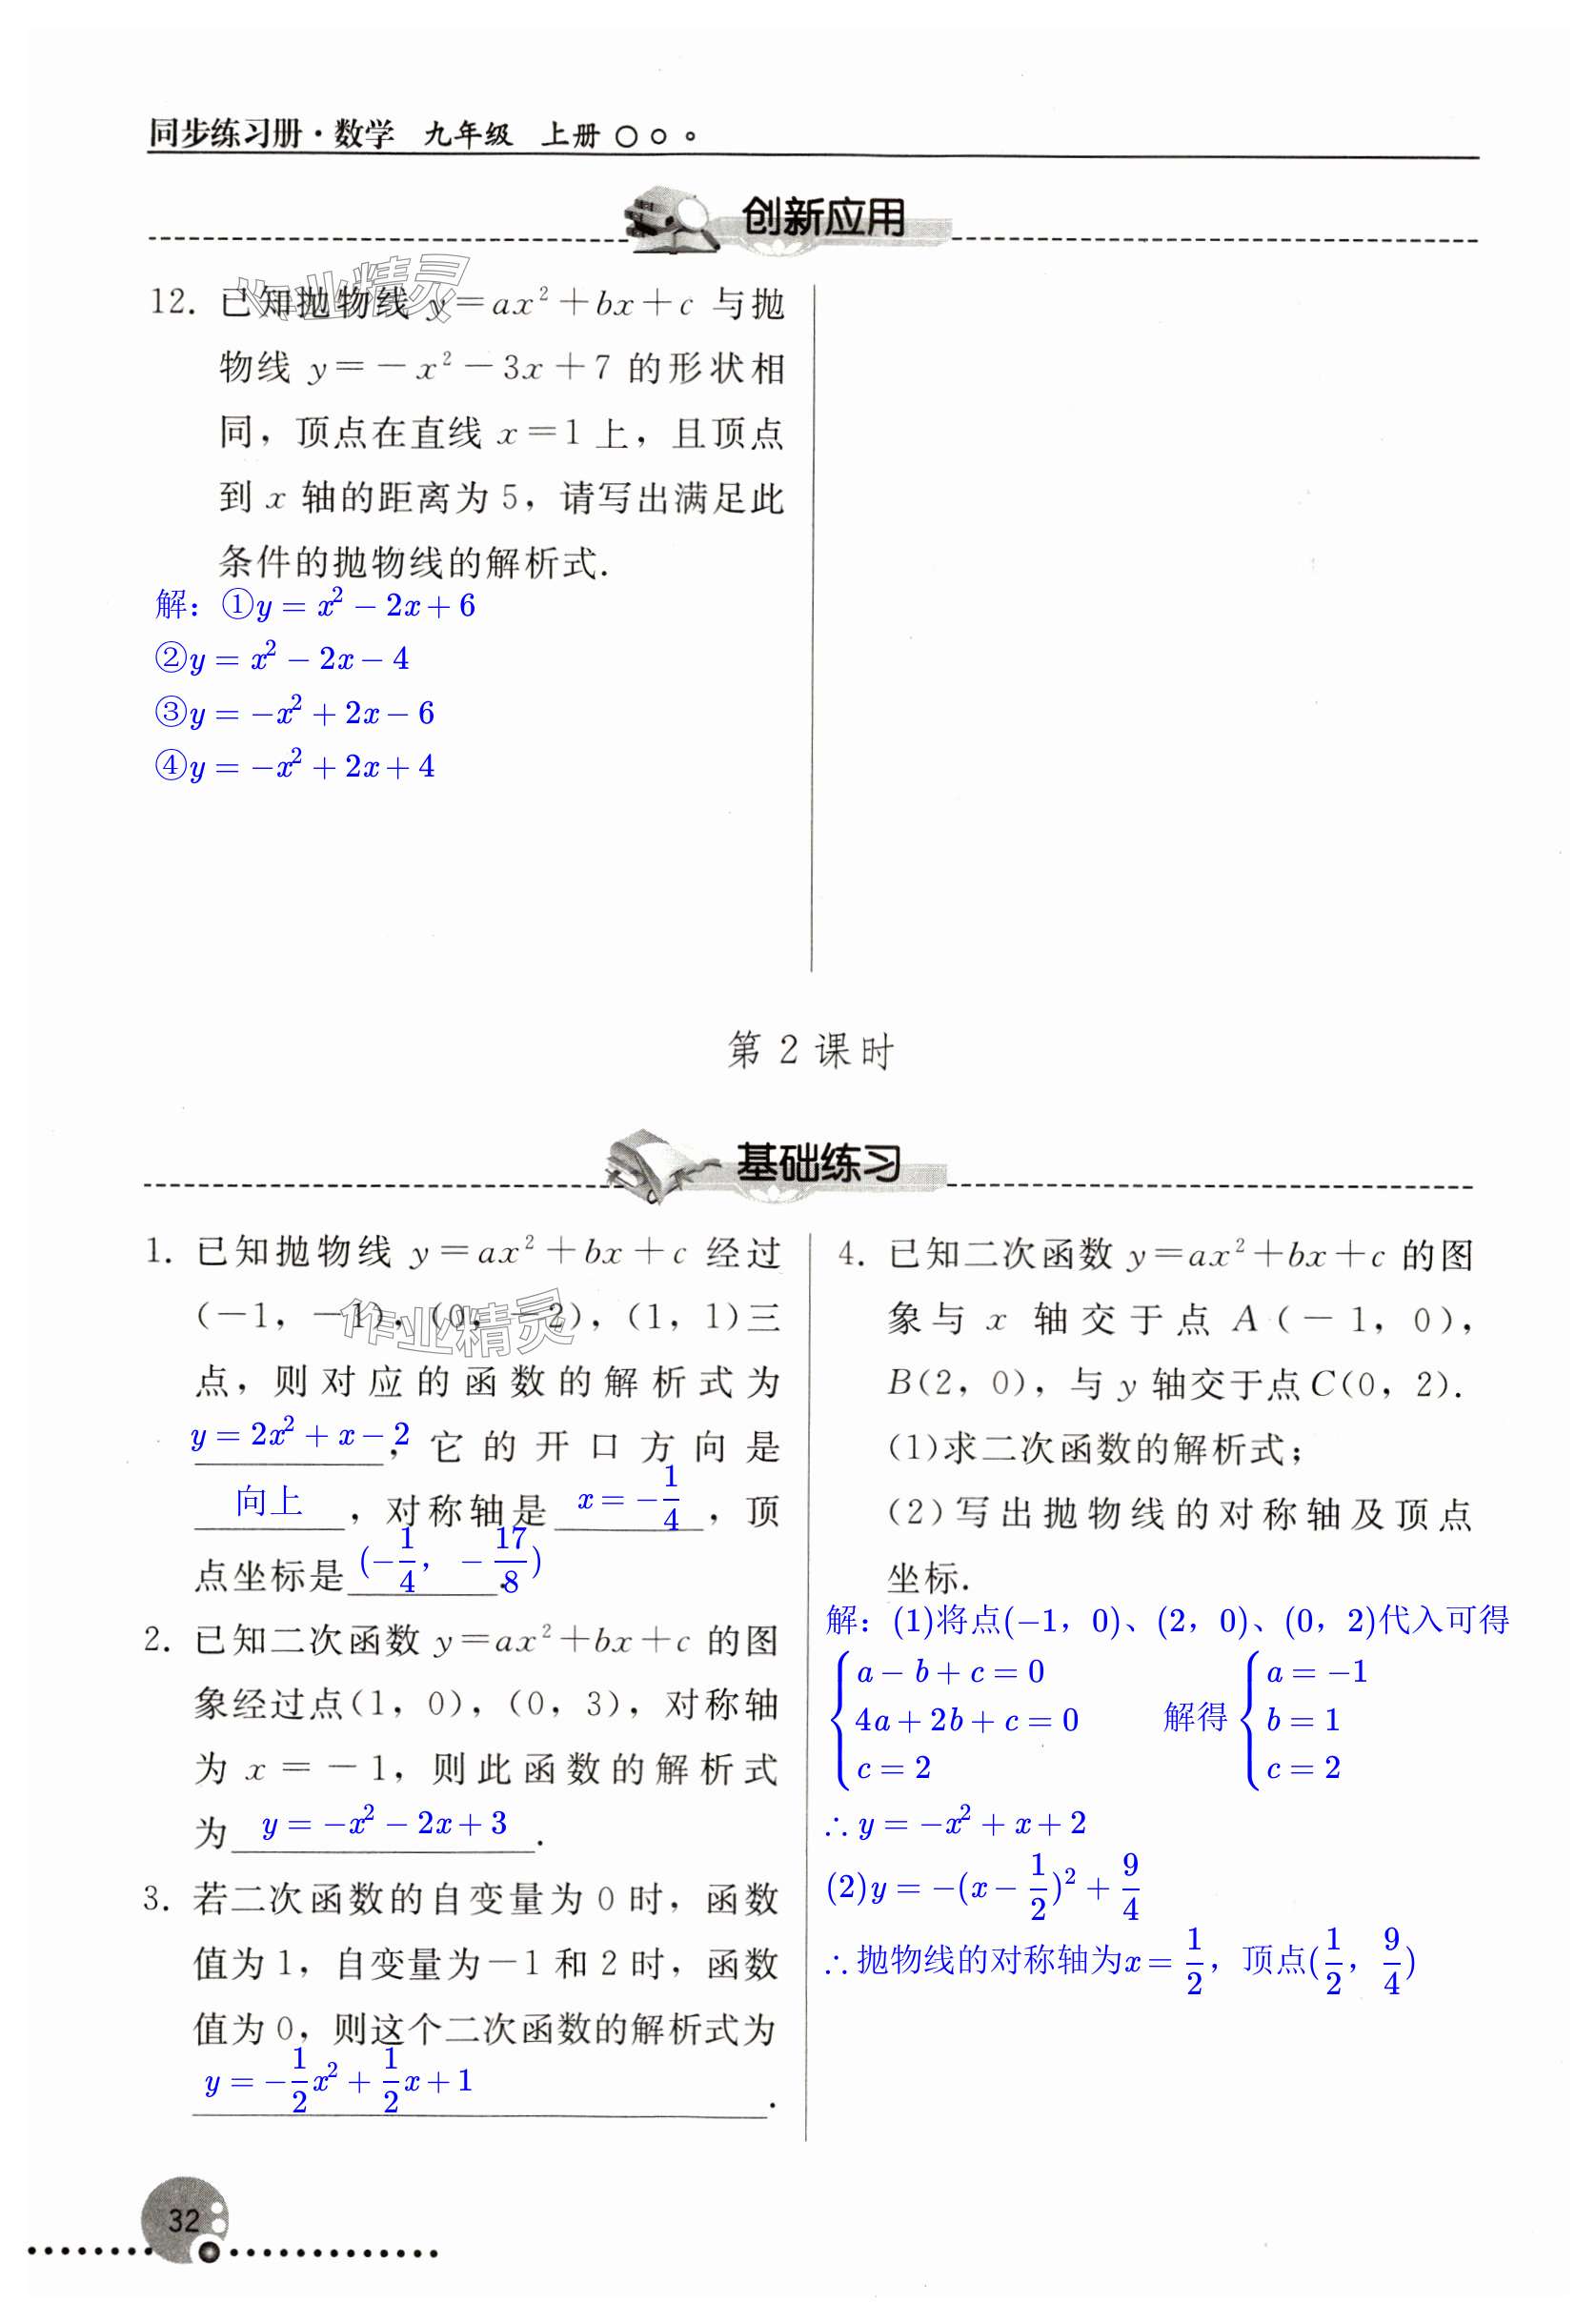 同步练习册·数学 九年级 上册
创新应用
作业精灵
12. 已知抛物线 y=ax²+bx+c 与抛
物线 y=-x²-3x+7 的形状相
同，顶点在直线 x=1 上，且顶点
到 x 轴的距离为 5，请写出满足此
条件的抛物线的解析式.
解：①y=x²-2x+6
②y=x²-2x-4
③y=-x²+2x-6
④y=-x²+2x+4
第 2 课时
基础练习
1. 已知抛物线 y=ax²+bx+c 经过
(-1，-1)，(0，-2)，(1，1)三
作业精灵
点，则对应的函数的解析式为
y=2x²+x-2，它的开口方向是
向上，对称轴是 x=-1/4，顶
点坐标是(-1/4，-17/8).
2. 已知二次函数 y=ax²+bx+c 的图
象经过点(1，0)，(0，3)，对称轴
为 x=-1，则此函数的解析式
为 y=-x²-2x+3.
3. 若二次函数的自变量为 0 时，函数
值为 1，自变量为-1 和 2 时，函数
值为 0，则这个二次函数的解析式为
y=-1/2x²+1/2x+1.
4. 已知二次函数 y=ax²+bx+c 的图
象与 x 轴交于点 A(-1，0)，
B(2，0)，与 y 轴交于点C(0，2).
(1)求二次函数的解析式；
(2)写出抛物线的对称轴及顶点
坐标.
解：(1)将点(-1，0)、(2，0)、(0，2)代入可得
a-b+c=0 a=-1
4a+2b+c=0 解得 b=1
c=2 c=2
∴y=-x²+x+2
(2)y=-(x-1/2)²+9/4
∴抛物线的对称轴为x=1/2，顶点(1/2，9/4)
32